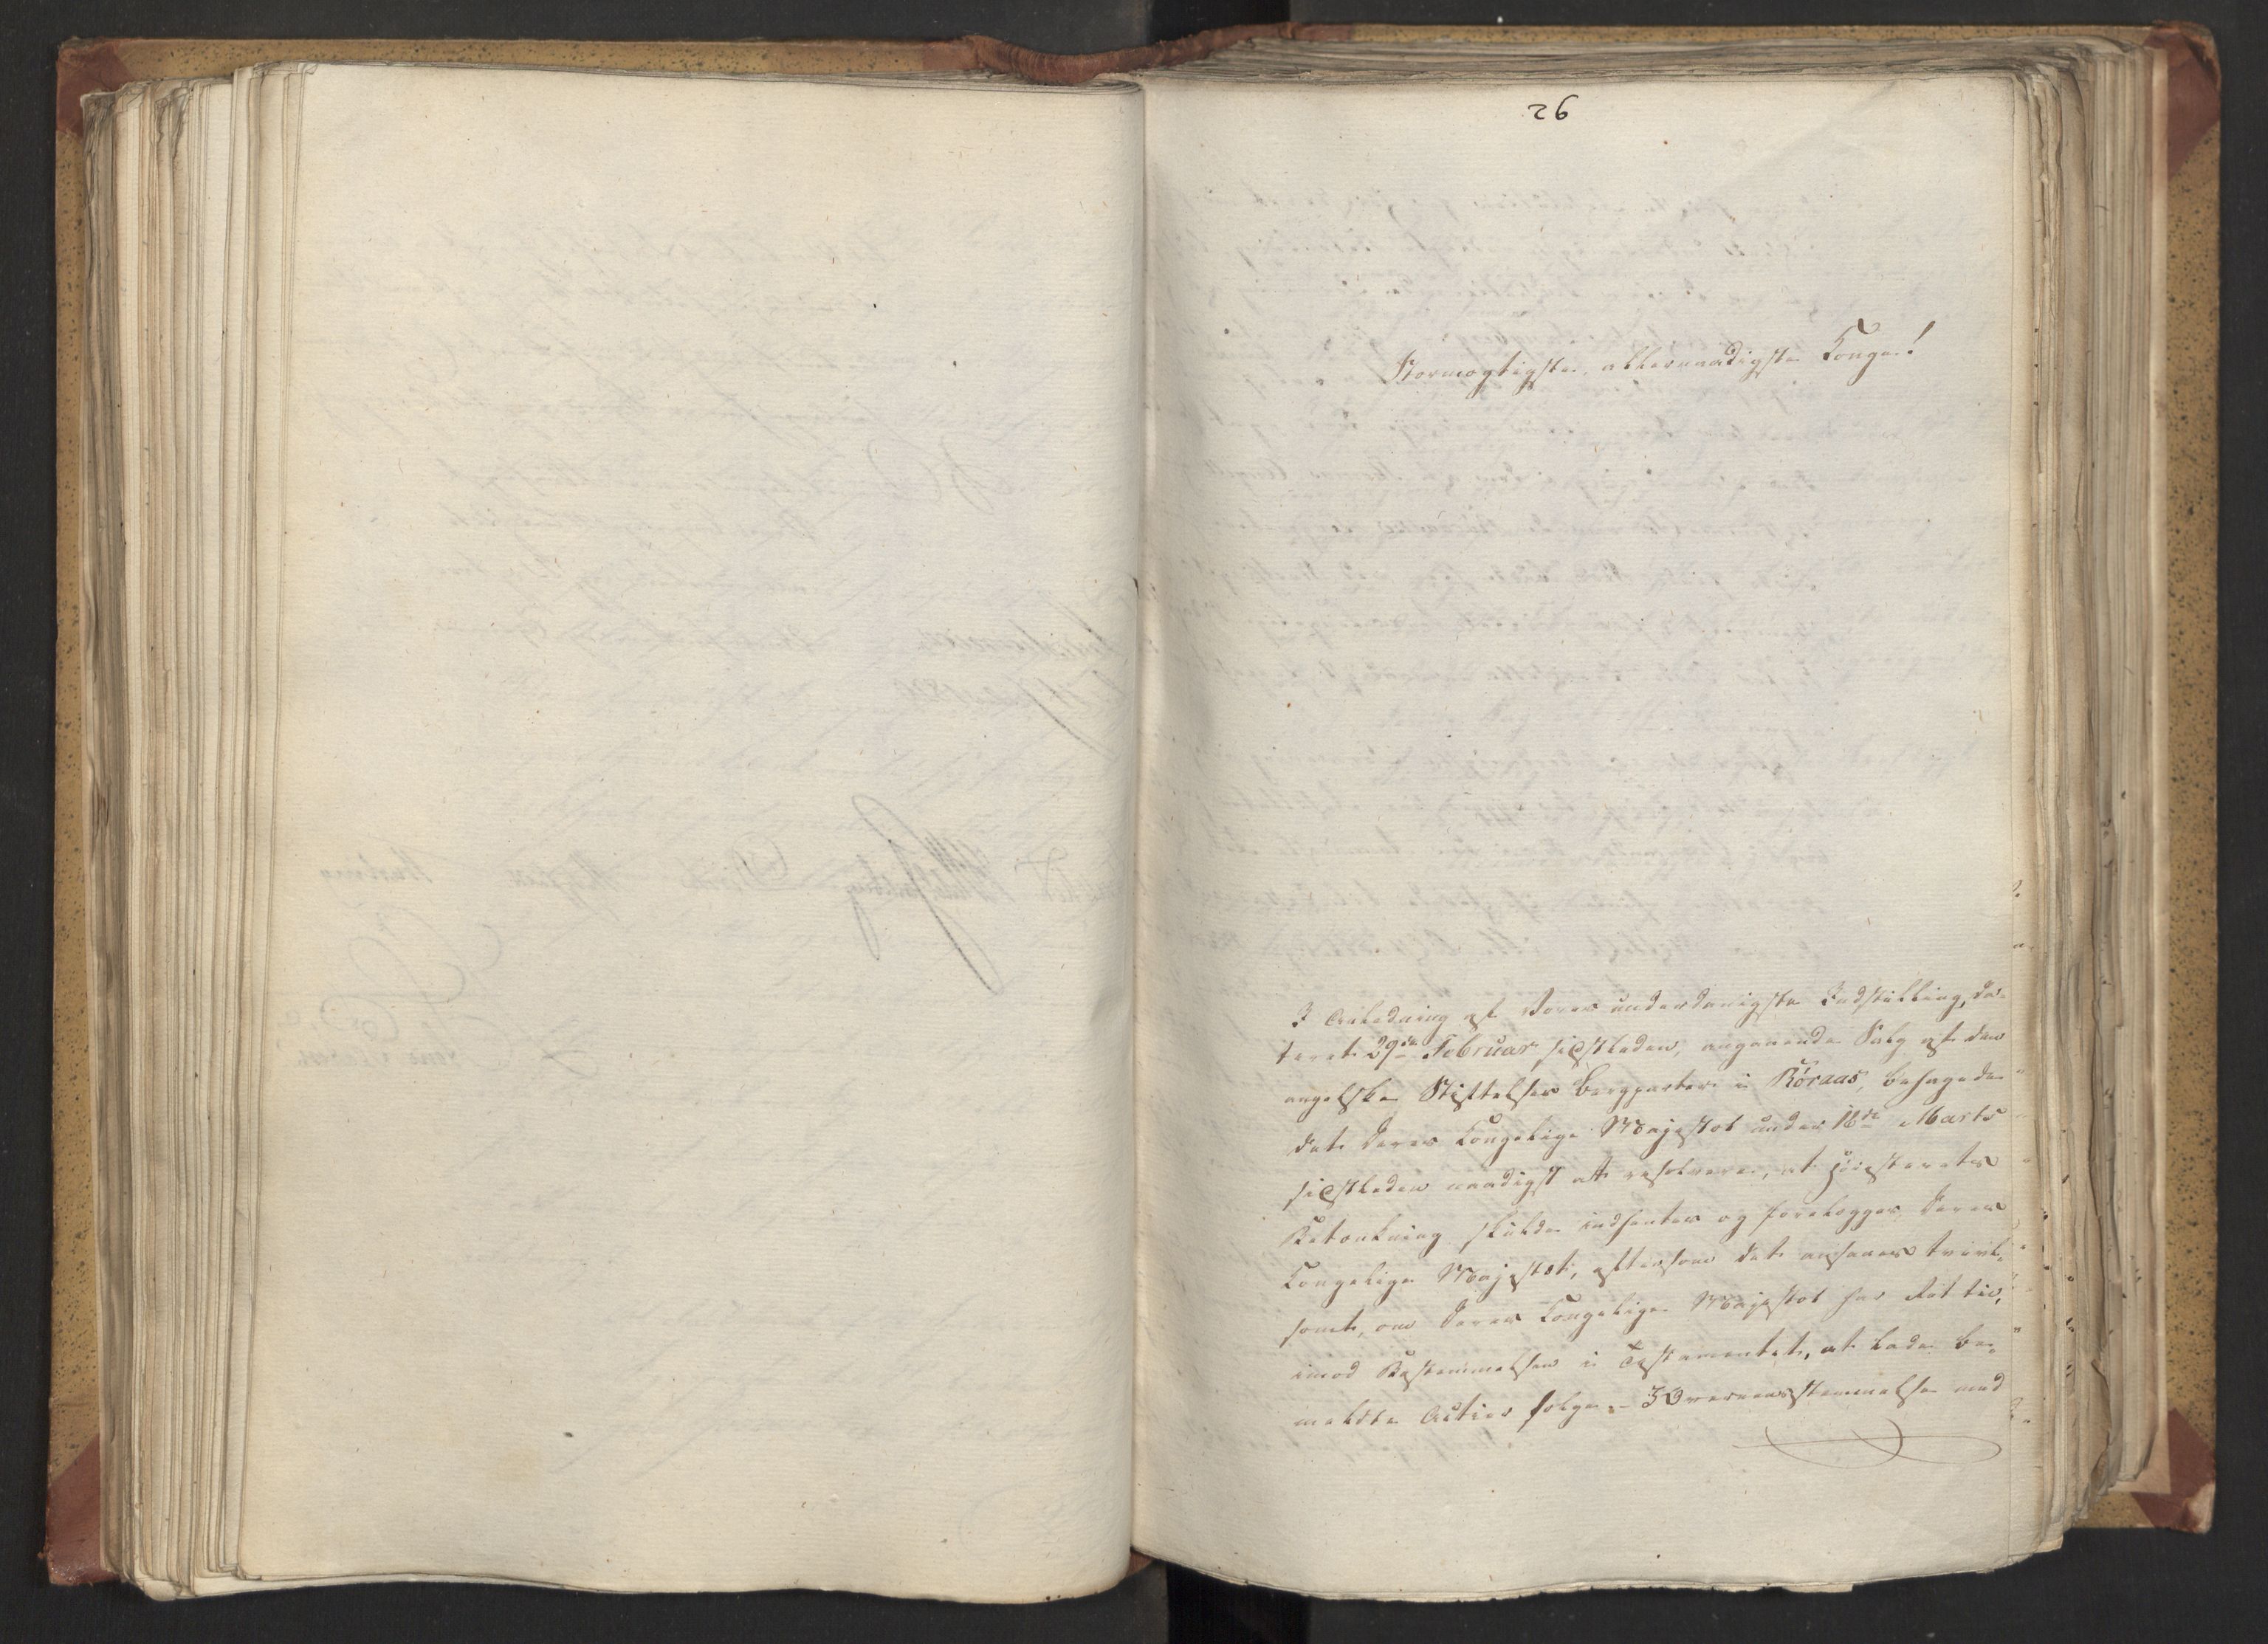 26
Stormægtigste, allernaadigste Konge!
I Anledning af vores underdanigste Indstilling, da-
teret 29de Februar sidstleden, angaaende Salg af den
angelske Stiftelses Bergparter i Røraas, behagede
det Deres Kongelige Majestæt under 16de Marts
sidstleden naadigst at resolvere, at Høiesterets
Betænkning skulde indhentes og forelægges Deres
Kongelige Majestæt, eftersom det ansaaes tvivl-
somt, om Deres Kongelige Majestæt har Ret til,
imod Bestemmelsen i Testamentet, at lade be-
meldte Actier sælge. - I Overeensstemmelse med